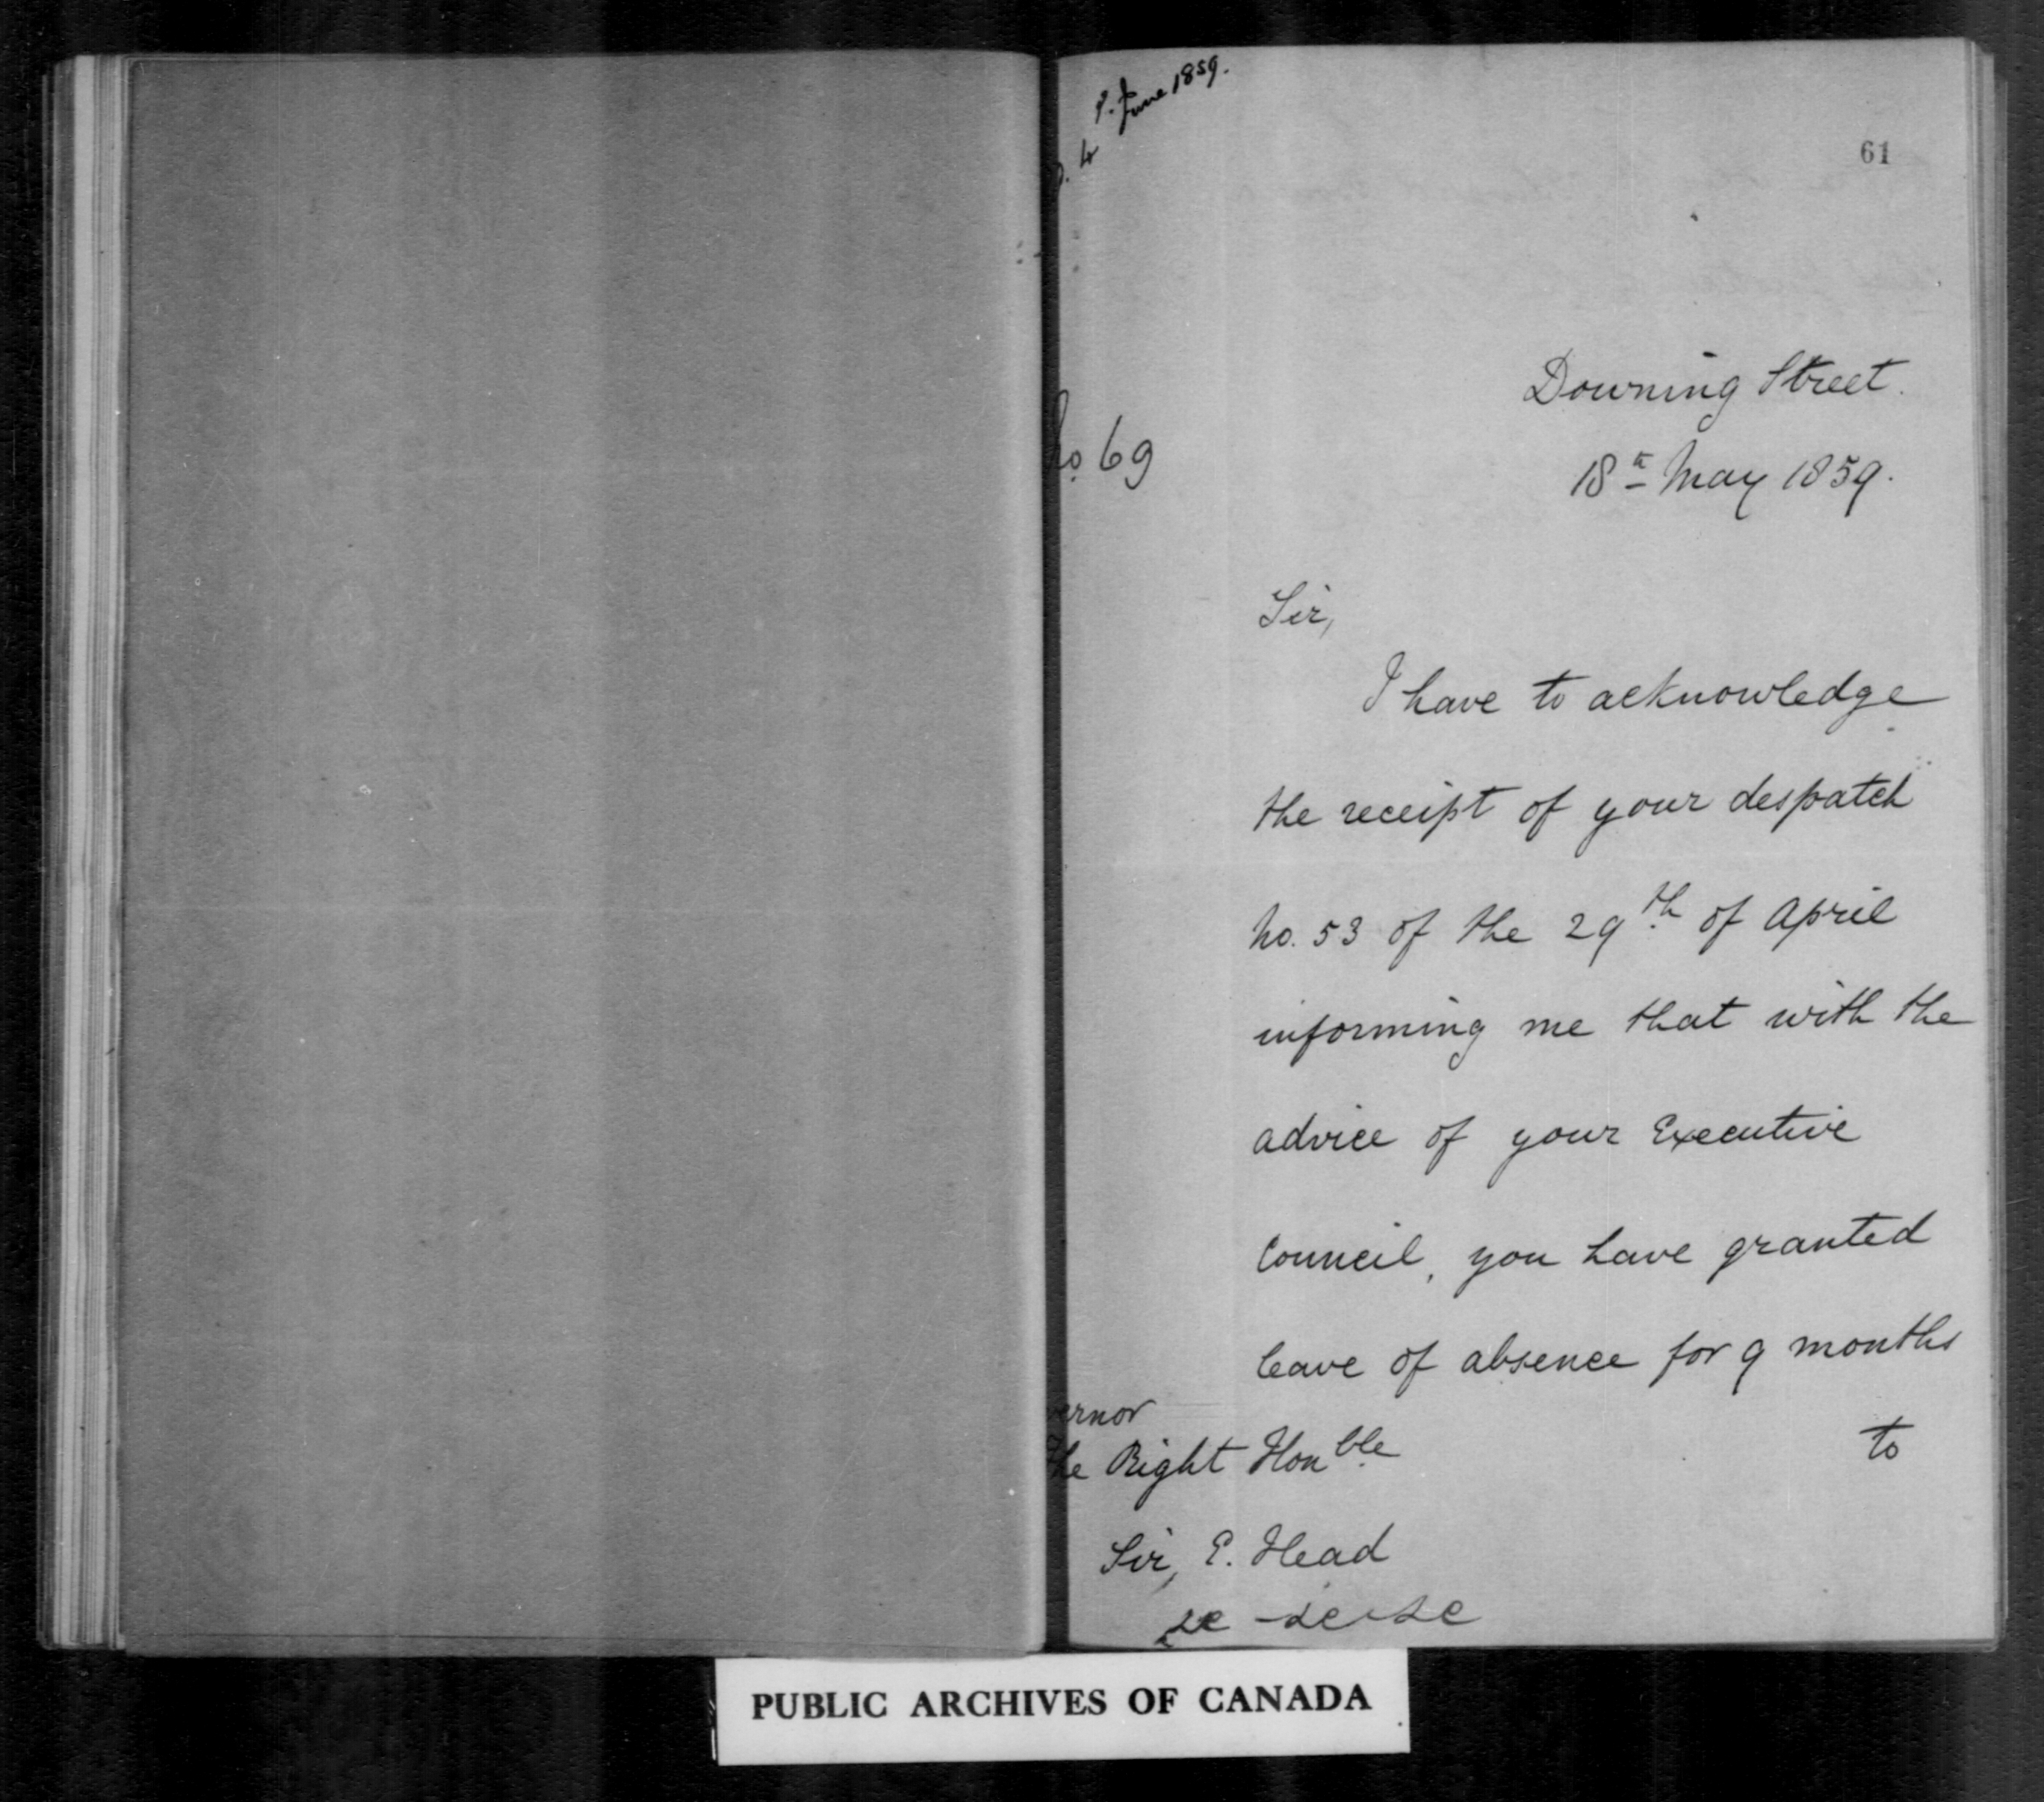 June 1859.
61
No. 69
Downing Street.
18th May 1859.
Sir,
I have to acknowledge
the receipt of your despatch
No. 53 of the 29th of April
informing me that with the
advice of your Executive
Council, you have granted
leave of absence for 9 months
to
ernor
The Right Honble
Sir, E. Head
PUBLIC ARCHIVES OF CANADA